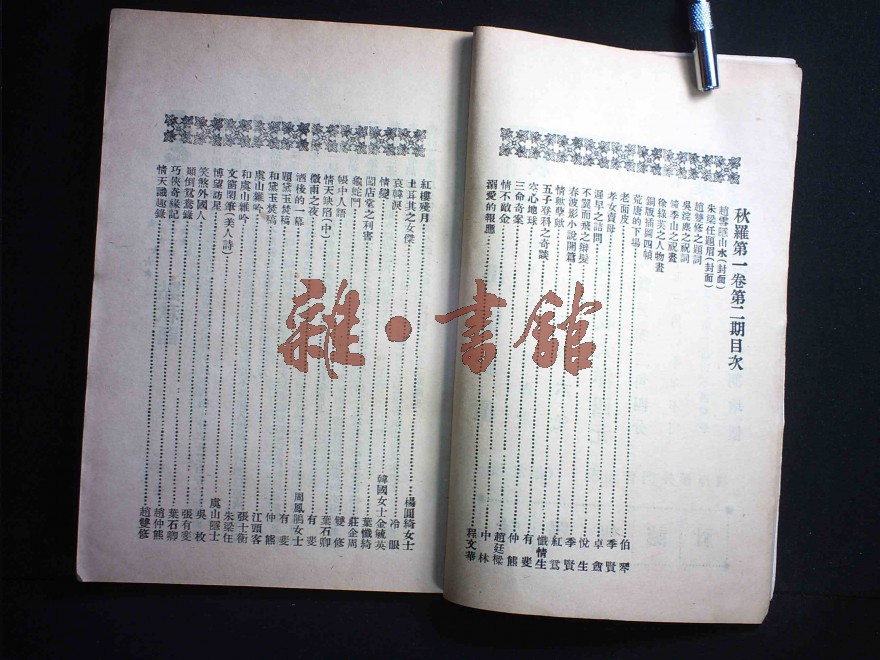 秋羅第一卷第二期目次
趙雪隱山水(封面)
朱梁任題眉(封面)
趙雙修之題詞
吳綻塵之祝詞
韓季山之祝畫
徐綠芙之人物畫
銅版插圖四幀
荒唐的下場 伯琴
老面皮 季賢
孝女賣母 卓
遲早之詰問 悅生
不翼而飛之辮髮 季賢
春波影小說開篇 紅鴛
情 懺情生
五子登科之奇談 有斐
空心地球 仲熊
三命奇案 趙廷樑
情不敵金 中林
溺愛的報應 程文華
紅樓殘月 楊園綺女士
土耳其之女傑 冷眼
哀韓淚 韓國女士金毓英
情變 葉懺綺
悶店堂之利害 莊企周
龜蛇鬥 雙修
帳中人語 葉石卿
情天缺陷(中) 有斐
微雨之夜 周鳳鵑女士
酒後的一幕 有斐
題黛玉焚稿 仲熊
和黛玉焚稿 江頭客
虞山雜吟 張士衡
和虞山雜吟 朱梁任
文窗閒(美人詩) 虞山隱士
博望訪星 吳枚
笑煞外國人 張有斐
顛倒鴛鴦錄 葉石卿
巧俠奇緣記 趙仲熊
情天讖趣錄 趙雙修
雜·書館